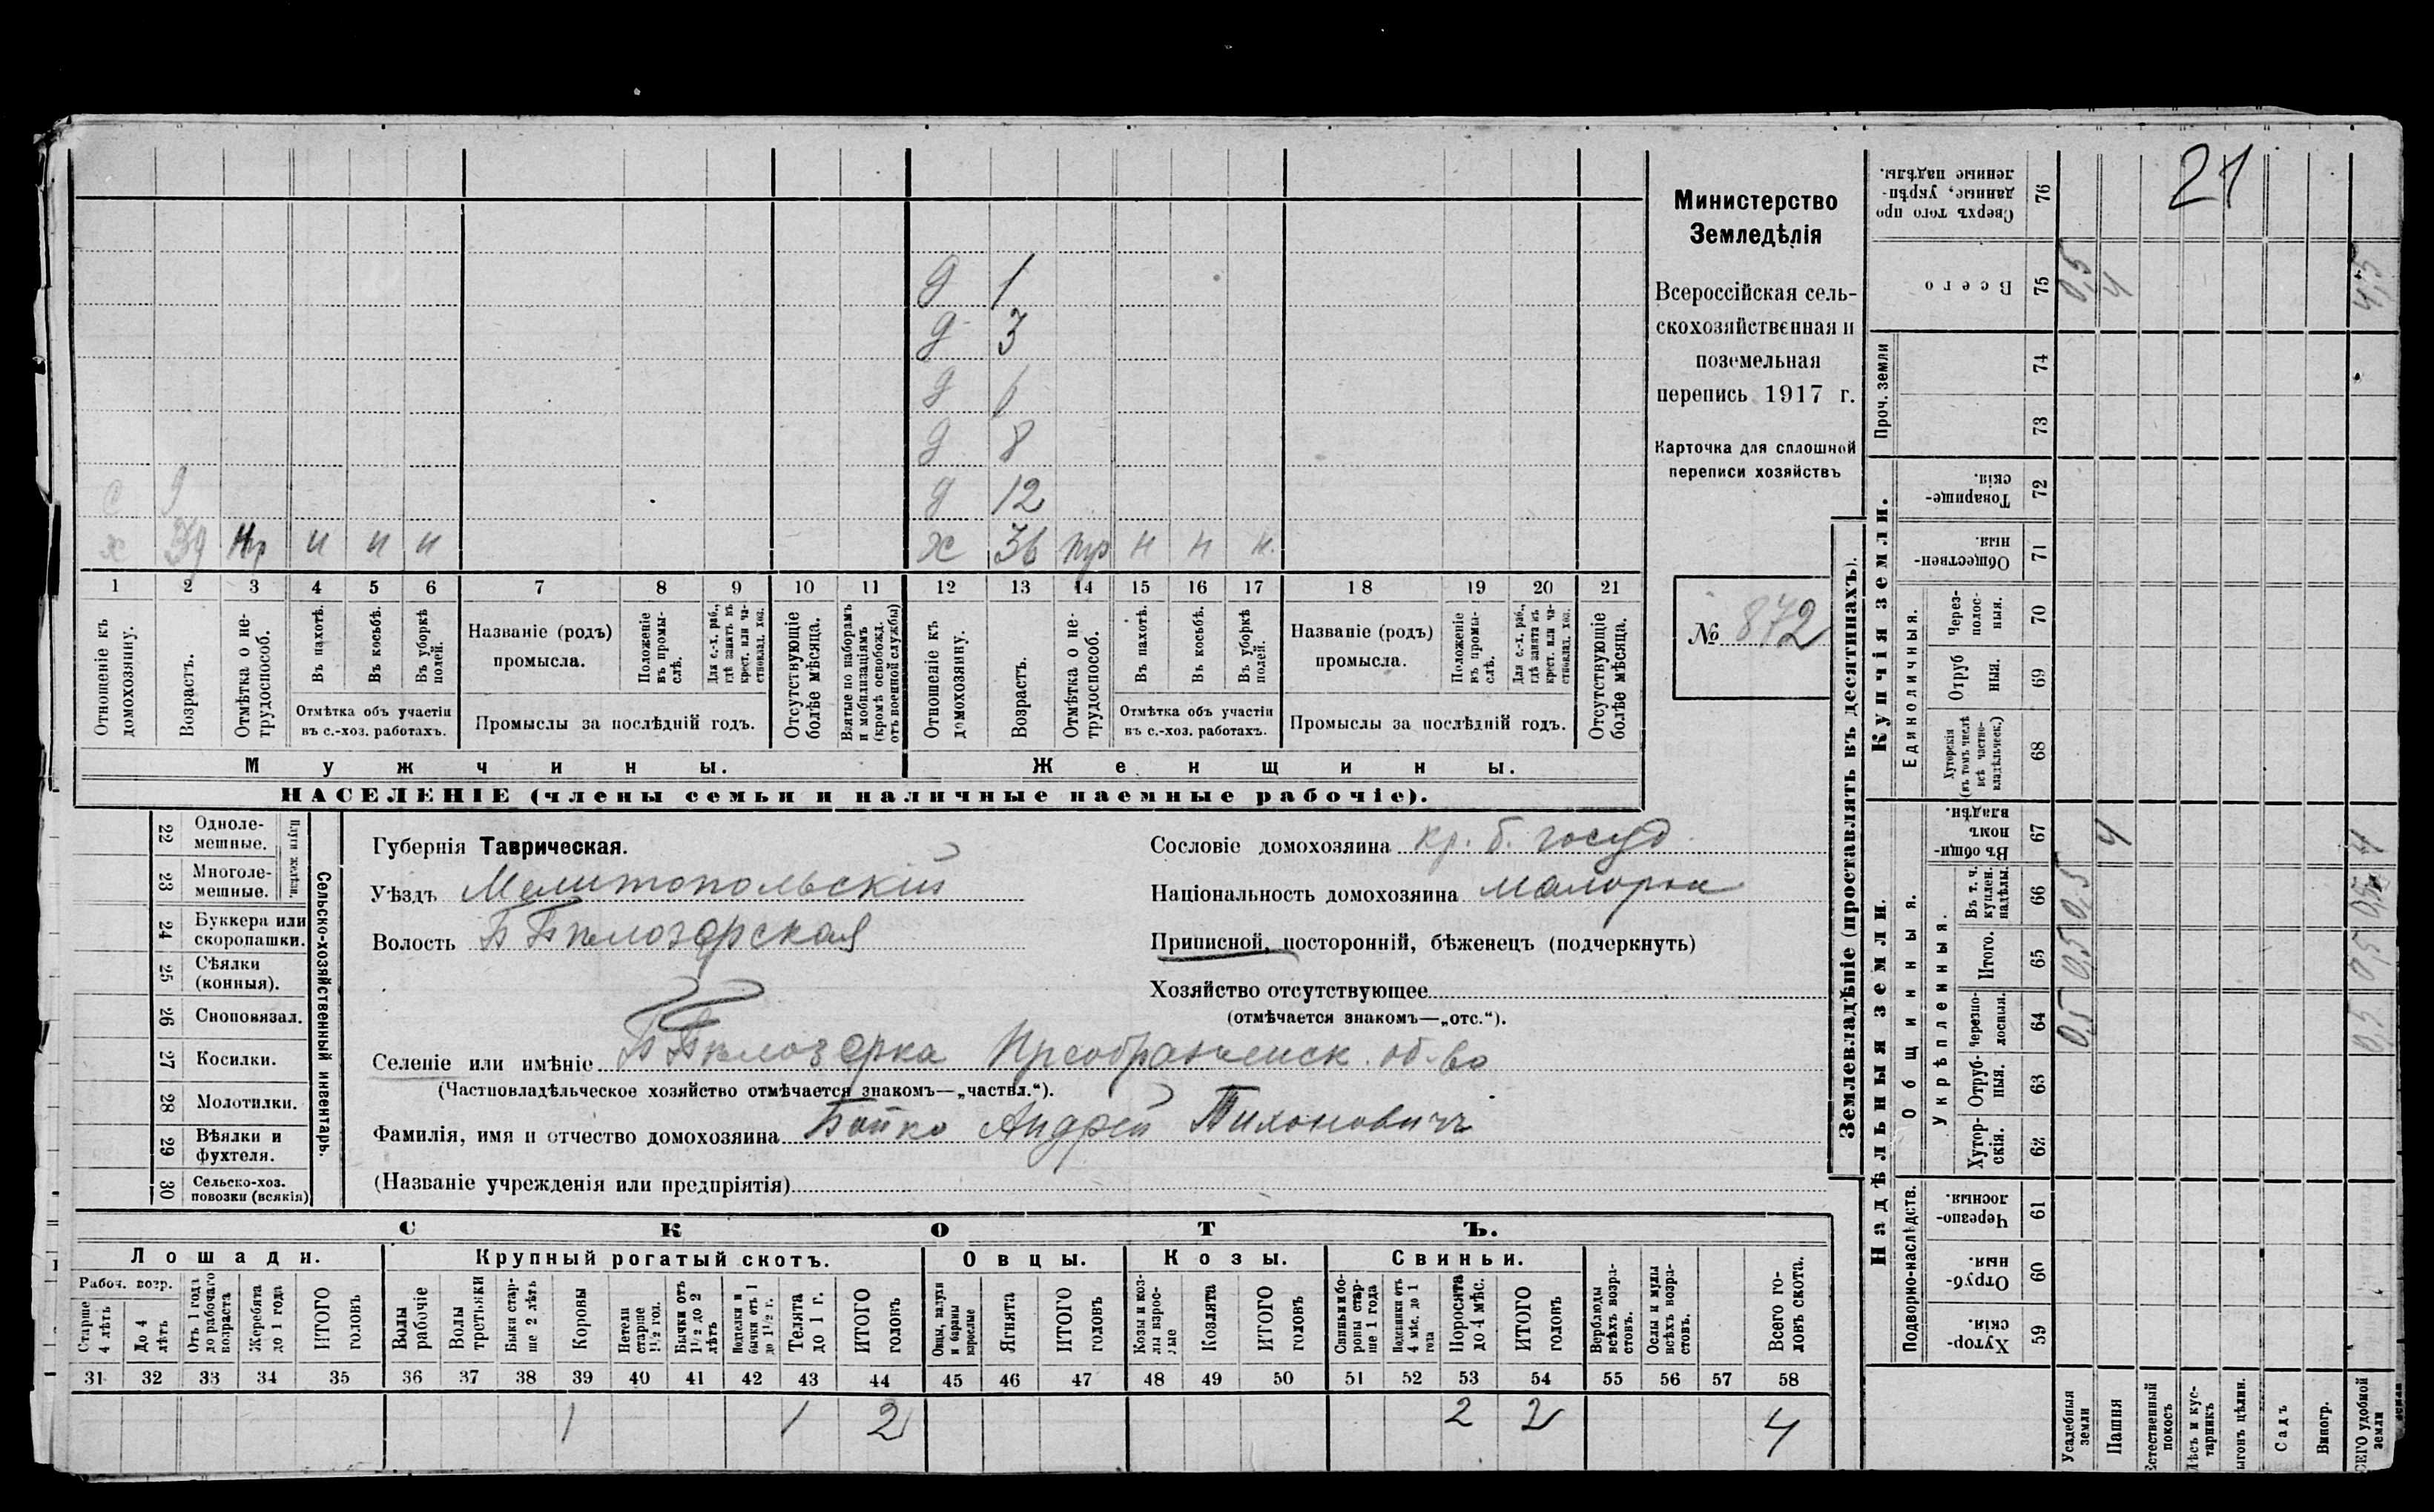 21
Министерство
Земледѣлія
Всероссійская сель-
скохозяйственная и
поземельная
перепись 1917 г.
Карточка для сплошной
переписи хозяйствъ
№ 872
д 1
д 3
д 6
д 8
с 9
д 12
х 39 нр н н н
х 36 нр н н н
1 2 3 4 5 6 7 8 9 10 11 12 13 14 15 16 17 18 19 20 21
Отношеніе къ домохозяину.
Возрастъ.
Отмѣтка о не-трудоспособ.
Въ пахотѣ.
Въ косьбѣ.
Въ уборкѣ полей.
Отмѣтка объ участіи
въ с.-хоз. работахъ.
Названіе (родъ)
промысла.
Положеніе въ промы-слѣ.
Для с.-х. раб., гдѣ занятъ въ крест. или ча-стновлад. хоз.
Промыслы за послѣдній годъ.
Отсутствующіе болѣе мѣсяца.
Взятые по наборамъ и мобилизаціямъ (кромѣ освобожд. отъ военной службы)
Отношеніе къ домохозяину.
Возрастъ.
Отмѣтка о не-трудоспособ.
Въ пахотѣ.
Въ косьбѣ.
Въ уборкѣ полей.
Отмѣтка объ участіи
въ с.-хоз. работахъ.
Названіе (родъ)
промысла.
Положеніе въ промы-слѣ.
Для с.-х. раб., гдѣ занята въ крест. или ча-стновлад. хоз.
Промыслы за послѣдній годъ.
Отсутствующіе болѣе мѣсяца.
Мужчины.
Женщины.
НАСЕЛЕНІЕ (члены семьи и наличные наемные рабочіе).
Сельско-хозяйственный инвентарь.
Плуги желѣзн.
22 Одноле-мешные.
23 Многоле-мешные.
24 Буккера или скоропашки.
25 Сѣялки (конныя).
26 Сноповязал.
27 Косилки.
28 Молотилки.
29 Вѣялки и фухтеля.
30 Сельско-хоз. повозки (всякія)
Губернія Таврическая.
Уѣздъ Мелитопольскій
Волость Б Бѣлозерская
Селеніе или имѣніе Б Бѣлозерка Преображенск. об-во
(Частновладѣльческое хозяйство отмѣчается знакомъ—„частвл.“).
Фамилія, имя и отчество домохозяина Бойко Андрей Тихоновичъ
(Названіе учрежденія или предпріятія)
Сословіе домохозяина кр. б. госуд
Національность домохозяина малорос
Приписной, посторонній, бѣженецъ (подчеркнуть)
Хозяйство отсутствующее
(отмѣчается знакомъ—„отс.“).
СКОТЪ.
Лошади.
Крупный рогатый скотъ.
Овцы.
Козы.
Свиньи.
Рабоч. возр.
Старше 4 лѣтъ
До 4 лѣтъ
Отъ 1 года до рабочаго возраста
Жеребята до 1 года
ИТОГО головъ
Волы рабочіе
Волы третьяки
Быки стар-ше 2 лѣтъ
Коровы
Нетели старше 1½ год.
Бычки отъ 1½ до 2 лѣтъ
Подтелки и бычки отъ 1 до 1½ г.
Телята до 1 г.
ИТОГО головъ
Овцы, валухи и бараны взрослые
Ягнята
ИТОГО головъ
Козы и коз-лы взрос-лые
Козлята
ИТОГО головъ
Свиньи и бо-ровы стар-ше 1 года
Подсвинки отъ 4 мѣс. до 1 года
Поросята до 4 мѣс.
ИТОГО головъ
Верблюды всѣхъ возра-стовъ.
Ослы и мулы всѣхъ возра-стовъ.
Всего го-ловъ скота.
31 32 33 34 35 36 37 38 39 40 41 42 43 44 45 46 47 48 49 50 51 52 53 54 55 56 57 58
1 1 2 2 2 4
Землевладѣніе (проставлять въ десятинахъ).
Надѣльныя земли.
Купчія земли.
Проч. земли
Подворно-наслѣдств.
Общинныя.
Укрѣпленныя.
Единоличныя.
Сверхъ того про данные, укрѣп-ленные надѣлы. 76
Всего 75 0,5 4 4,5
74
73
Товарище-скія. 72
Обществен-ныя. 71
Через-полос-ныя. 70
Отруб ныя. 69
Хуторскія (въ томъ числѣ всѣ частно-владѣльческ.) 68
Въ общи-номъ владѣн. 67 4 4
Въ т. ч. куплен. надѣлы. 66 0,5 0,5
Итого. 65 0,5 0,5
Черезпо-лосныя. 64 0,5 0,5
Отруб-ныя. 63
Хутор-скія. 62
Черезпо-лосныя. 61
Отруб-ныя. 60
Хутор-скія. 59
Усадебныя земли
Пашня
Естественный покосъ
Лѣсъ и кус-тарникъ
ыгонъ цѣлин.
Садъ
Виногр.
СЕГО удобной земли